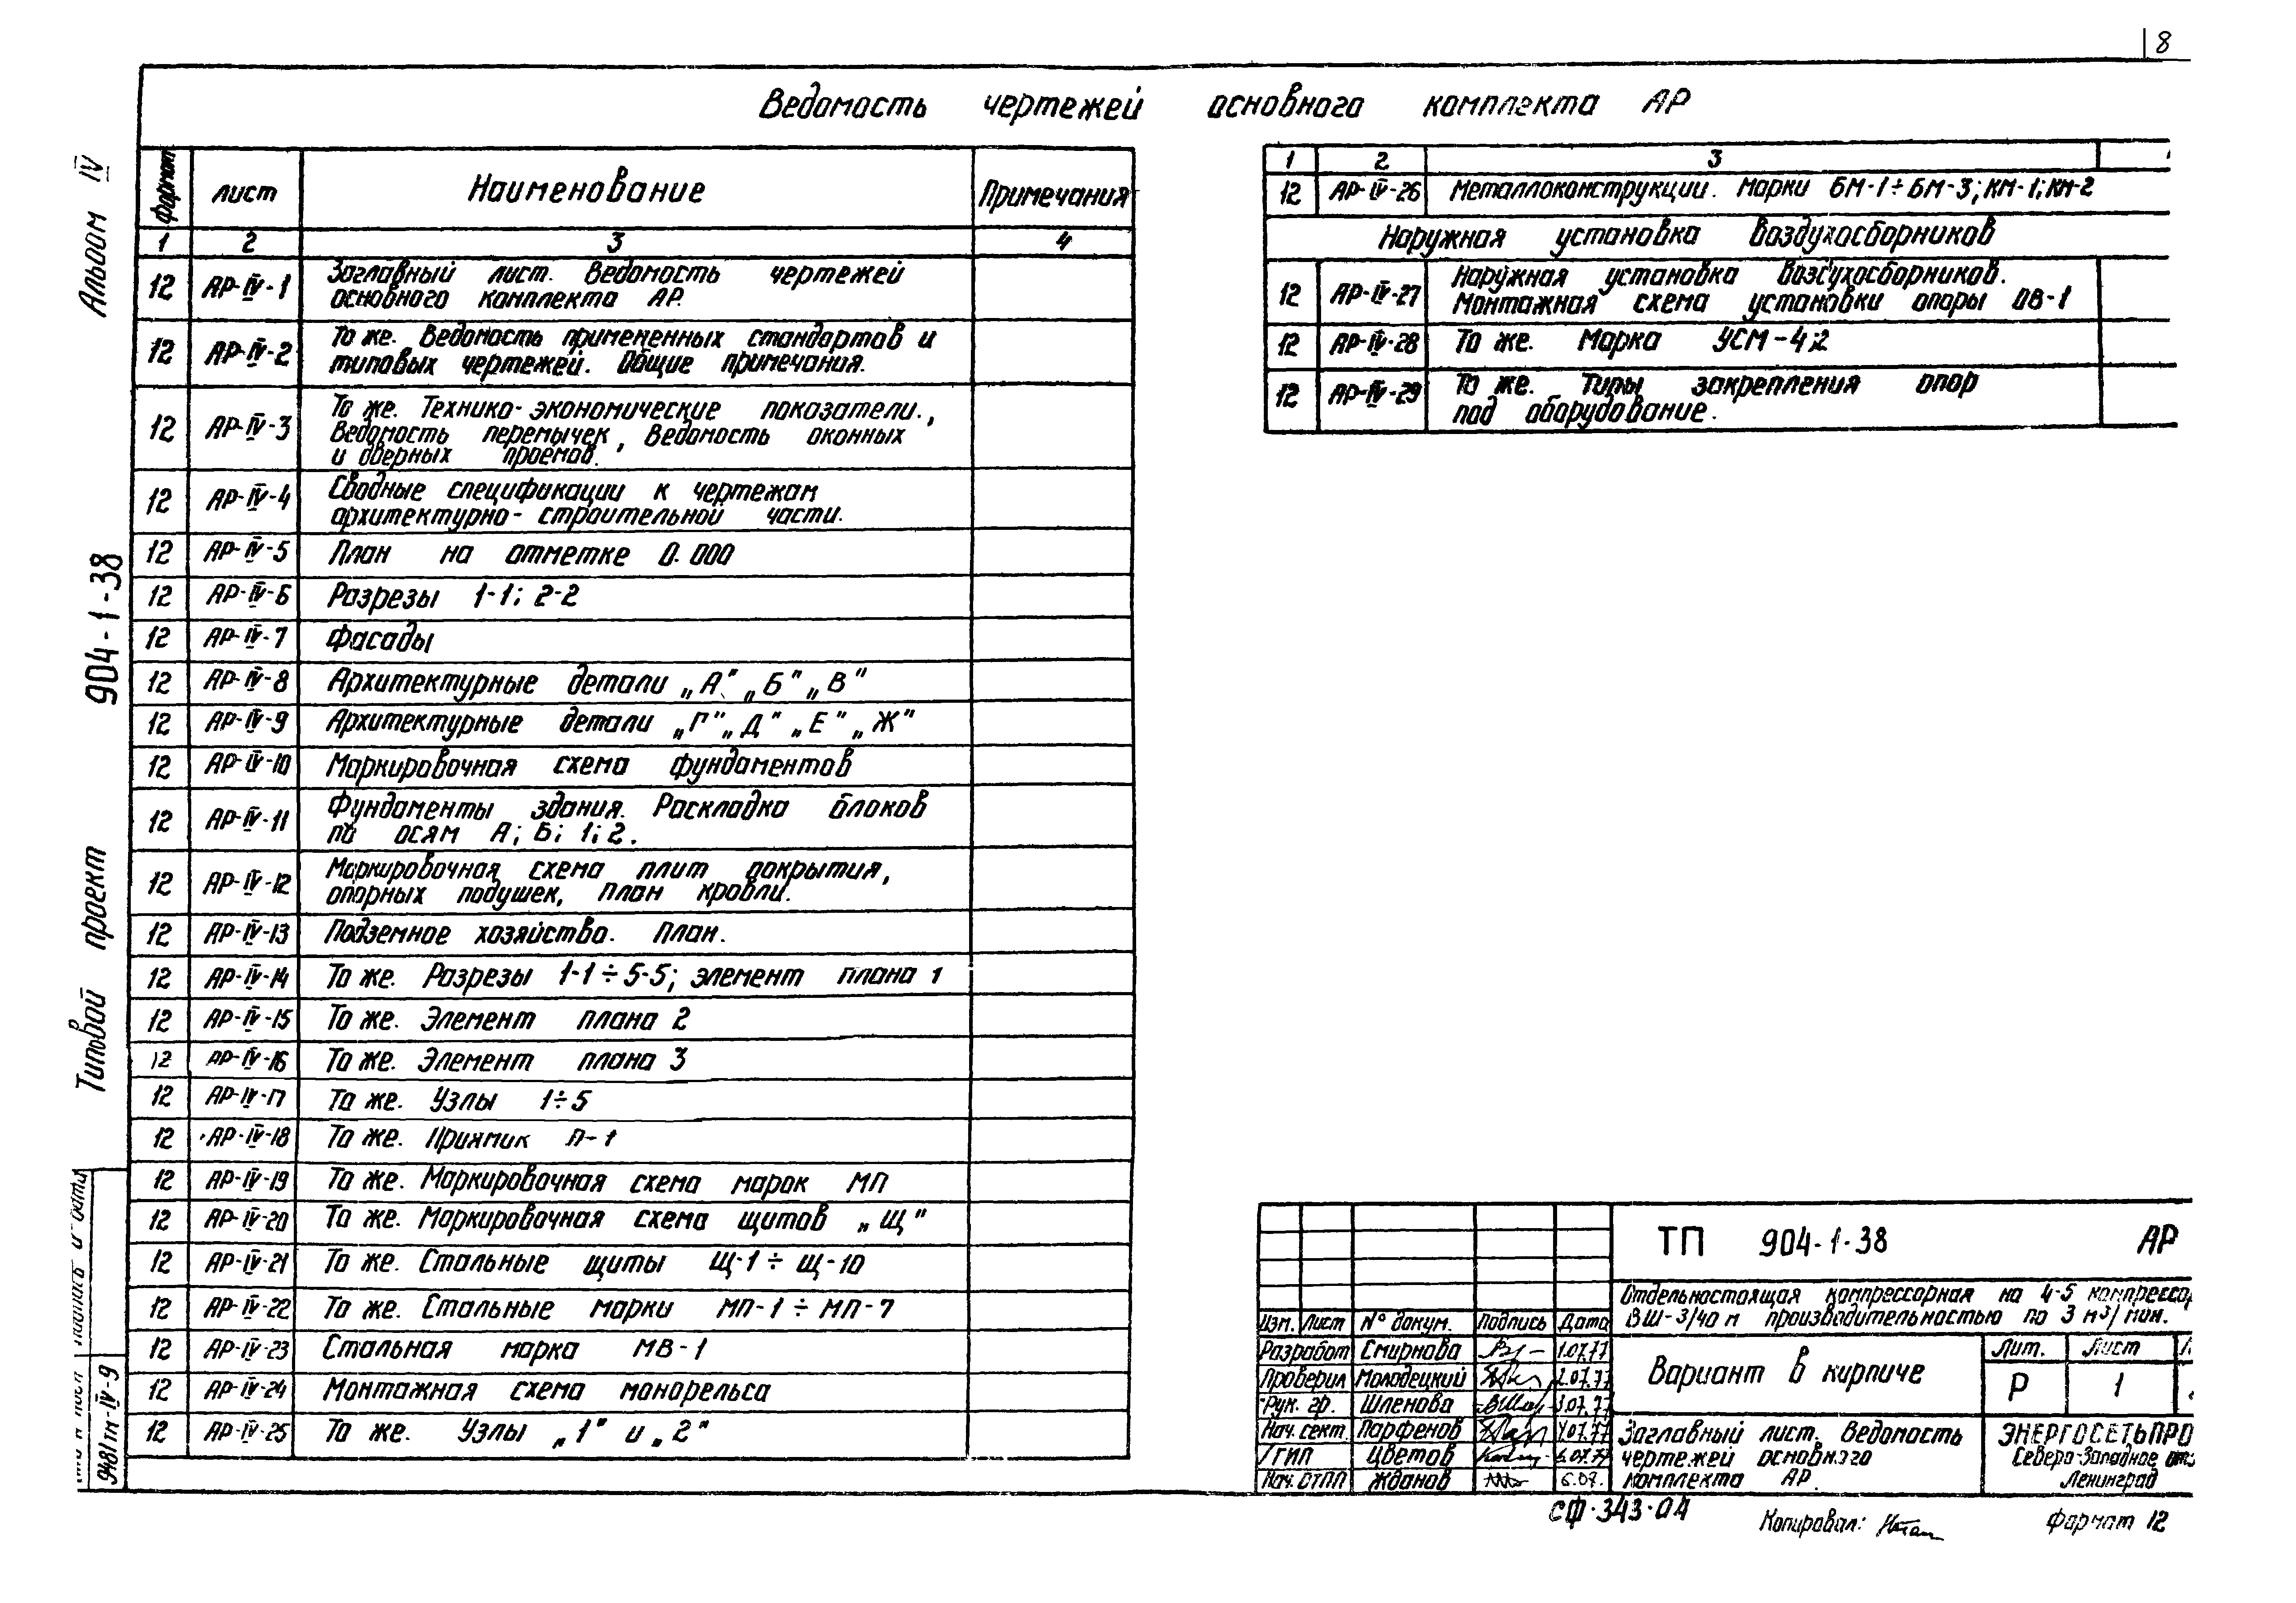 8
Ведомость чертежей основного комплекта АР
формат лист Наименование Примечания
1 2 3 4
12 АР-IV-1 Заглавный лист. Ведомость чертежей
основного комплекта АР.
12 АР-IV-2 То же. Ведомость примененных стандартов и
типовых чертежей. Общие примечания.
12 АР-IV-3 То же. Технико-экономические показатели.,
Ведомость перемычек, Ведомость оконных
и дверных проемов.
12 АР-IV-4 Сводные спецификации к чертежам
архитектурно-строительной части.
12 АР-IV-5 План на отметке 0.000
12 АР-IV-6 Разрезы 1-1; 2-2
12 АР-IV-7 Фасады
12 АР-IV-8 Архитектурные детали „А" „Б" „В"
12 АР-IV-9 Архитектурные детали „Г" „Д" „Е" „Ж"
12 АР-IV-10 Маркировочная схема фундаментов
12 АР-IV-11 Фундаменты здания. Раскладка блоков
по осям А; Б; 1; 2.
12 АР-IV-12 Маркировочная схема плит покрытия,
опорных подушек, план кровли.
12 АР-IV-13 Подземное хозяйство. План.
12 АР-IV-14 То же. Разрезы 1-1÷5-5; элемент плана 1
12 АР-IV-15 То же. Элемент плана 2
12 АР-IV-16 То же. Элемент плана 3
12 АР-IV-17 То же. Узлы 1÷5
12 АР-IV-18 То же. Приямик П-1
12 АР-IV-19 То же. Маркировочная схема марок МП
12 АР-IV-20 То же. Маркировочная схема щитов „Щ"
12 АР-IV-21 То же. Стальные щиты Щ-1÷Щ-10
12 АР-IV-22 То же. Стальные марки МП-1÷МП-7
12 АР-IV-23 Стальная марка МВ-1
12 АР-IV-24 Монтажная схема монорельса
12 АР-IV-25 То же. Узлы „1" и „2"
1 2 3
12 АР-IV-26 Металлоконструкции. Марки БМ-1÷БМ-3; КМ-1; КМ-2
Наружная установка воздухосборников
12 АР-IV-27 Наружная установка воздухосборников.
Монтажная схема установки опоры ОВ-1
12 АР-IV-28 То же. Марка УСМ-4;2
12 АР-IV-29 То же. Типы закрепления опор
под оборудование.
Альбом IV
904-1-38
Типовой проект
9481тм-IV-9
ТП 904-1-38 АР
Отдельностоящая компрессорная на 4-5 компрессор
ВШ-3/40м производительностью по 3 м³/мин.
Изм. Лист N° докум. Подпись Дата
Разработ Смирнова 1.07.77
Проверил Молодецкий 2.07.77
Рук. гр. Шленова 3.07.77
Нач. сект. Парфенов 4.07.77
ГИП Цветов 6.07.77
Нач. ОТПП Жданов 6.07.
Вариант в кирпиче
Лит. Лист
Р 1
Заглавный лист. Ведомость
чертежей основного
комплекта АР.
ЭНЕРГОСЕТЬПРО
Северо-Западное от
Ленинград
СФ-343-04
Копировал:
Формат 12